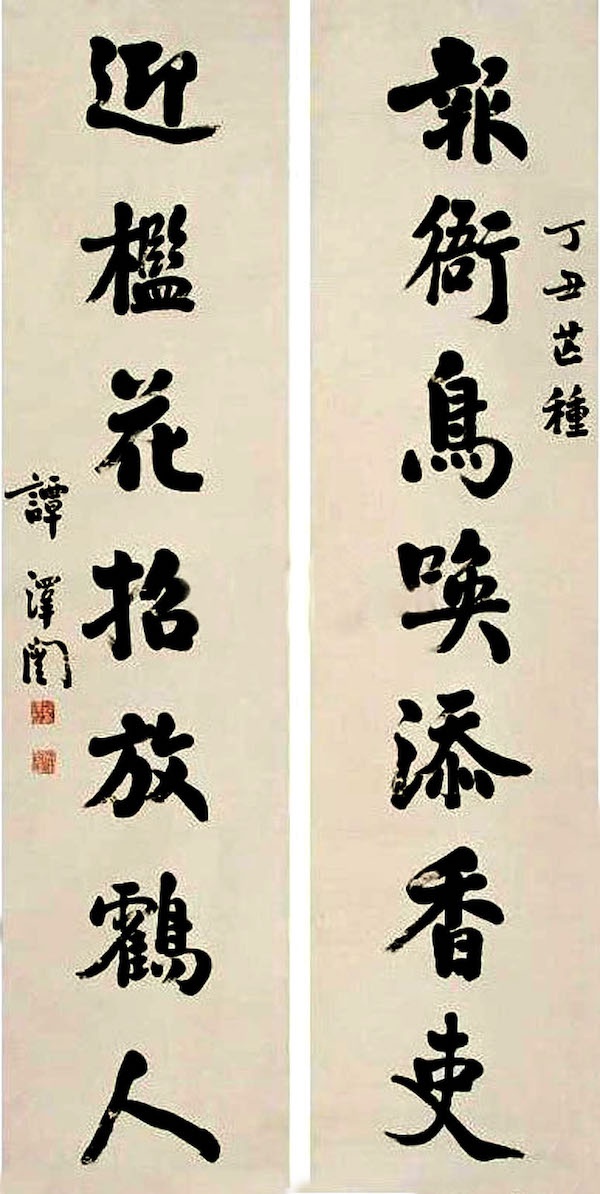 報衙鳥喚添香吏
丁丑芒種
迎檻花招放鶴人
譚澤闓